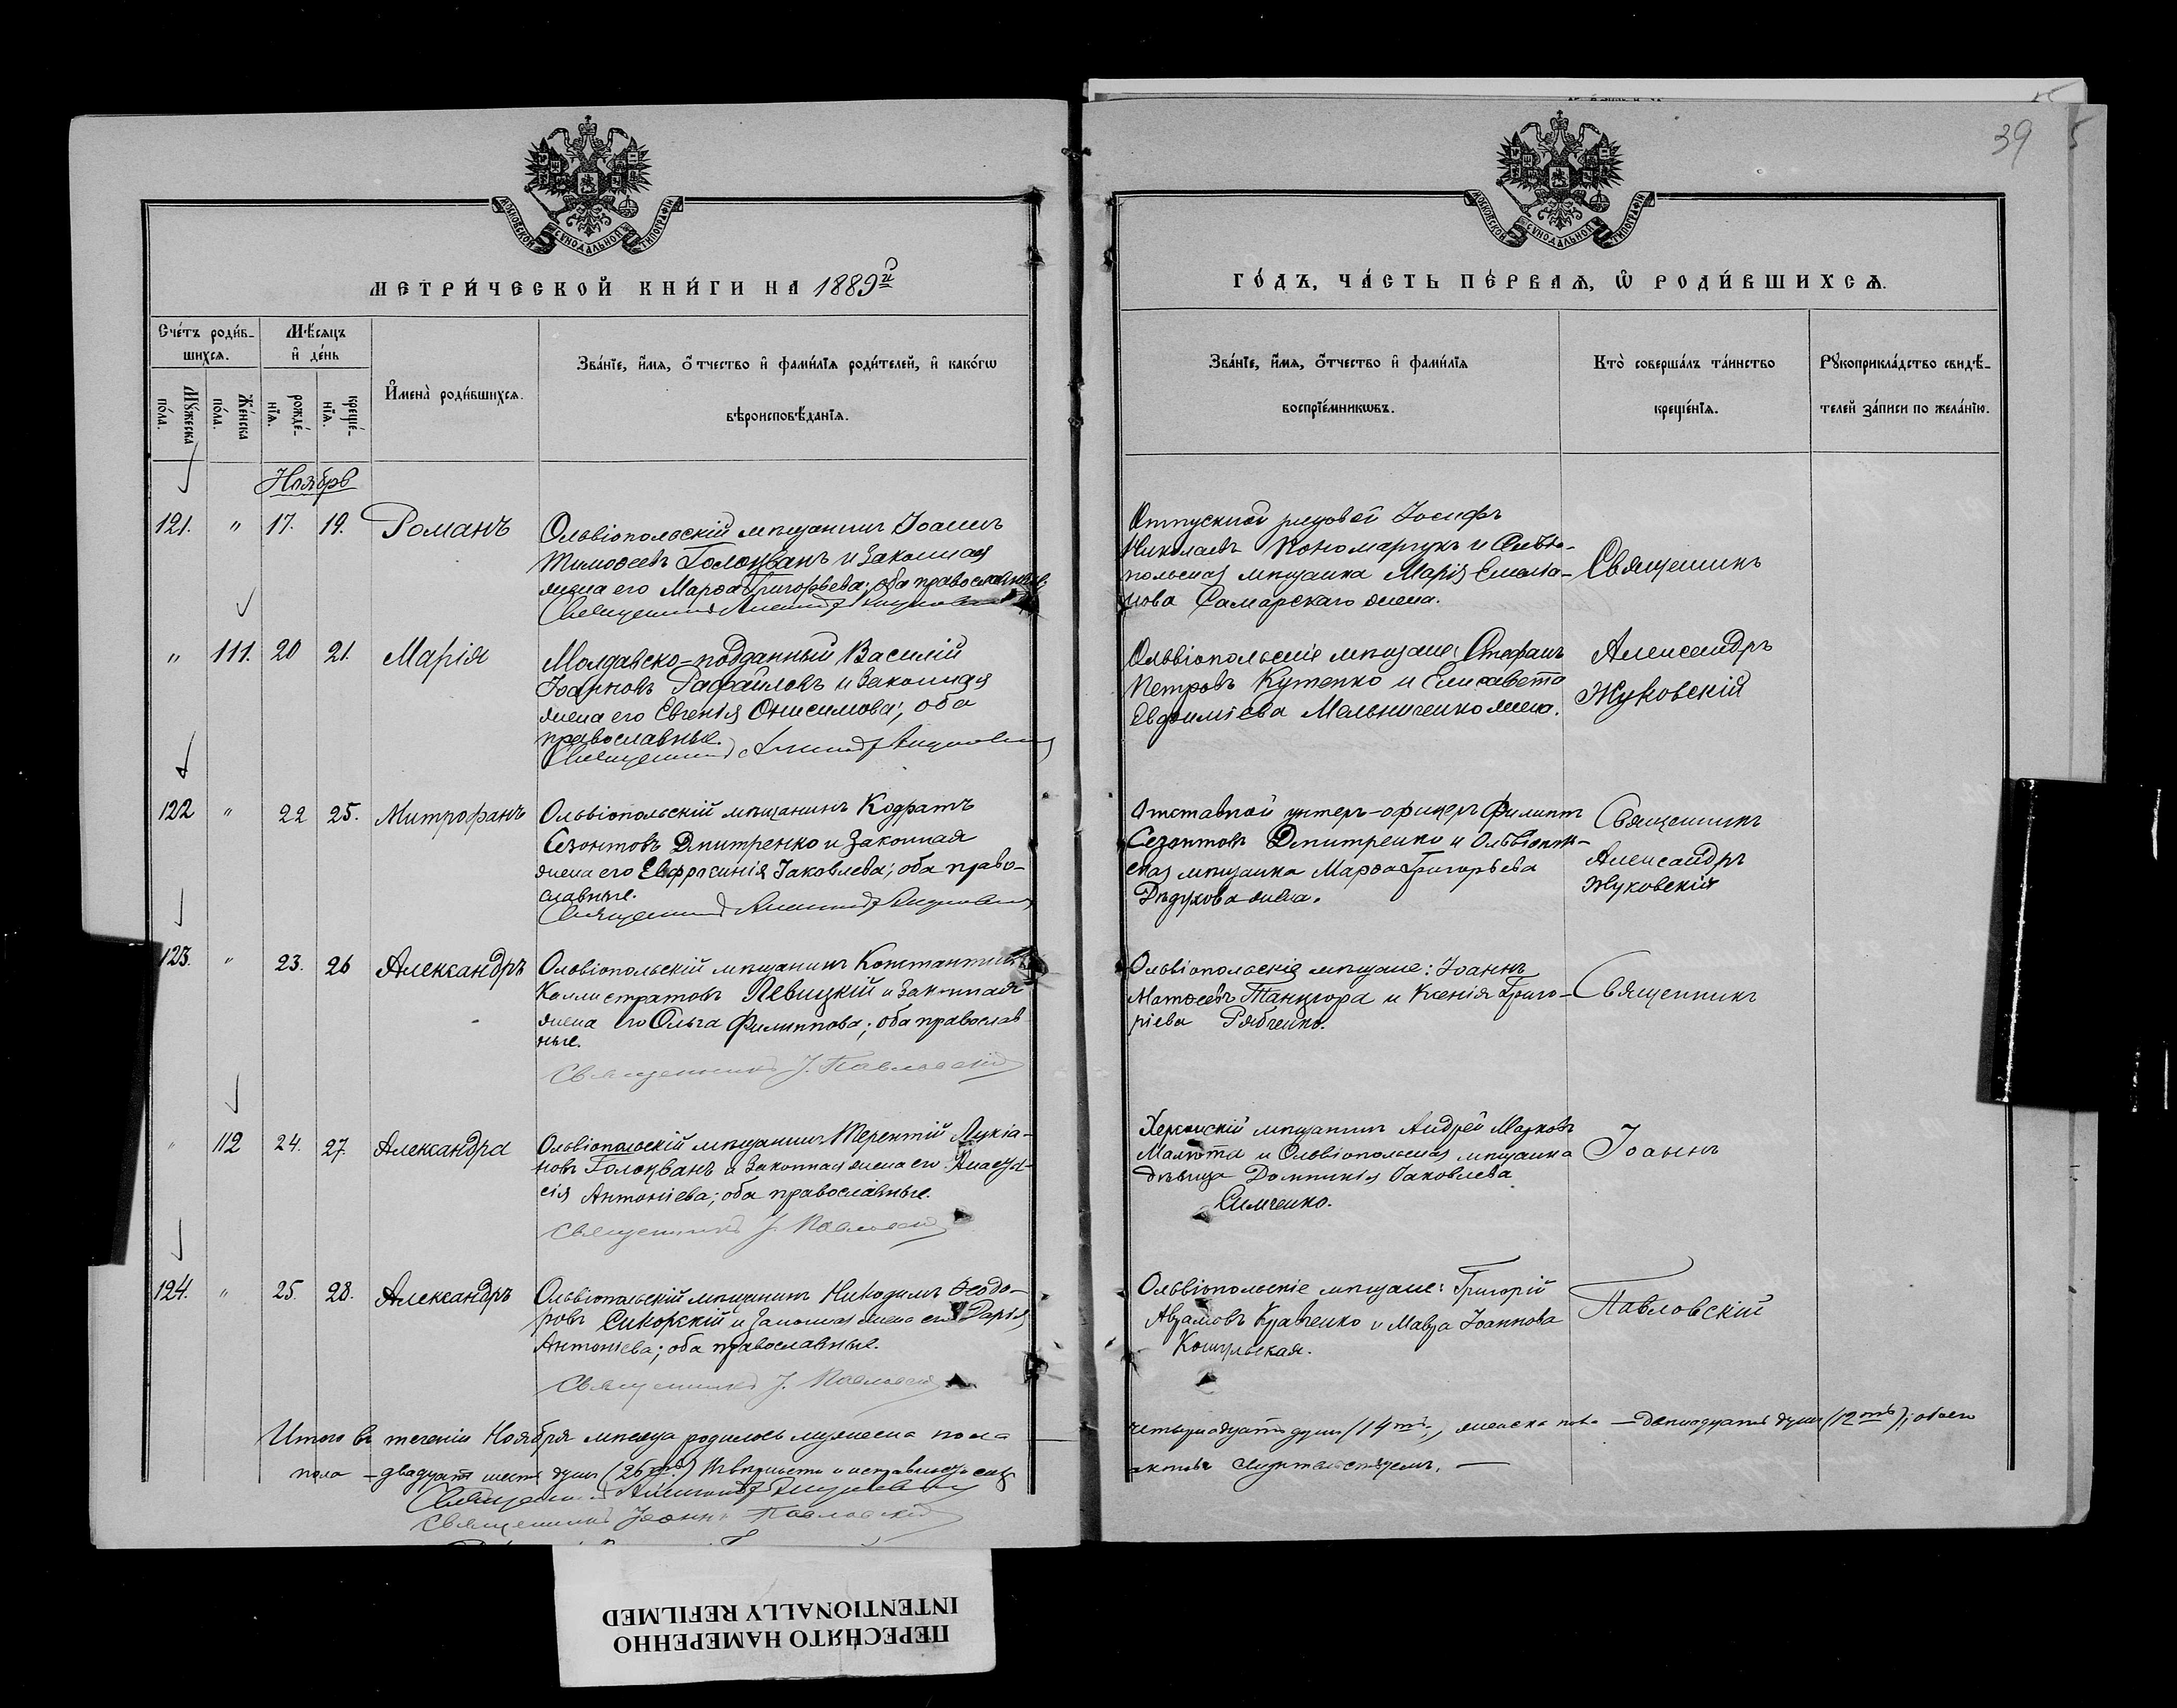 МОСКОВСКОЙ СѴНОДАЛЬНОЙ ТИПОГРАФІИ
МЕТРИ́ЧЕСКОЙ КНИ́ГИ НА 1889й
Сче́тъ роди́в-
шихсѧ.
Мѣ́сѧцъ
и҆ де́нь
Мꙋ́жеска
по́ла.
Же́нска
по́ла.
рожде́-
нїѧ.
креще́-
нїѧ.
И҆мена̀ роди́вшихсѧ.
Зва́нїе, и҆́мѧ, ѻ҆́тчество и҆ фами́лїѧ роди́телей, и҆ како́гѡ
вѣроисповѣ́данїѧ.
Ноябрь
121. " 17. 19. Романъ
Ольвіопольскій мѣщанинъ Іоаннъ
Тимоѳеевъ Голоцванъ и законная
жена его Марѳа Григорьева; оба православные
Священникъ Александръ Жуковскій
" 111. 20 21. Марія
Молдавско-подданный Василій
Іоанновъ Рафаиловъ и законная
жена его Евгенія Онисимова; оба
православные.
Священникъ Александръ Жуковскій
122 " 22 25. Митрофанъ
Ольвіопольскій мѣщанинъ Кодратъ
Сезонтовъ Дмитренко и законная
жена его Евфросинія Іаковлева; оба право-
славные.
Священникъ Александръ Жуковскій
123. " 23. 26 Александръ
Ольвіопольскій мѣщанинъ Константинъ
Каллистратовъ Левицкій и законная
жена его Ольга Филиппова; оба православ
ные.
Священникъ І. Павловскій
" 112 24. 27. Александра
Ольвіопольскій мѣщанинъ Терентій Лукіа-
новъ Голоцванъ и законная жена его Анаста-
сія Антоніева; оба православные.
Священникъ І. Павловскій
124. " 25. 28. Александръ
Ольвіопольскій мѣщанинъ Никодимъ Ѳеодо-
ровъ Сикорскій и законная жена его Дарія
Антоніева; оба православные.
Священникъ І. Павловскій
Итого въ теченіи Ноября мѣсяца родилось мужеска пола
пола – двадцать шесть душъ (26ть)
Священникъ Александръ Жуковскій
Священникъ Іоаннъ Павловскій
39
МОСКОВСКОЙ СѴНОДАЛЬНОЙ ТИПОГРАФІИ
ГО́ДЪ, ЧА́СТЬ ПЕ́РВАѦ, Ѡ҆ РОДИ́ВШИХСѦ.
Зва́нїе, и҆́мѧ, ѻ҆́тчество и҆ фами́лїѧ
воспрїе́мникѡвъ.
Кто̀ соверша́лъ та́инство
креще́нїѧ.
Рꙋкоприкла́дство свидѣ́-
телей за́писи по жела́нїю.
Отпускной рядовой Іосифъ
Николаевъ Пономарчукъ и Ольвіо-
польская мѣщанка Марія Емелія-
нова Самарскаго жена.
Священникъ
Ольвіопольскіе мѣщане: Стефанъ
Петровъ Кутепко и Елисавета
Евдоиміева Мельниченко жена.
Александръ
Жуковскій
Отставной унтеръ-офицеръ Филиппъ
Сезонтовъ Дмитренко и Ольвіополь-
ская мѣщанка Марѳа Григорьева
Дѣдухова жена.
Священникъ
Александръ
Жуковскій
Ольвіопольскіе мѣщане: Іоаннъ
Матѳеевъ Танцюра и Ксенія Григо-
ріева Рябченко.
Священникъ
Херсонскій мѣщанинъ Андрей Марковъ
Малюта и Ольвіопольская мѣщанка
дѣвица Домникія Іаковлева
Симченко.
Іоаннъ
Ольвіопольскіе мѣщане: Григорій
Аврамовъ Кравченко и Мавра Іоаннова
Кошульская.
Павловскій
четырнадцать душъ (14ть), женска пола – двенадцать душъ (12ть); обоего
актовъ свидетельствуемъ. –
ПЕРЕСНЯТО НАМЕРЕННО
INTENTIONALLY REFILMED